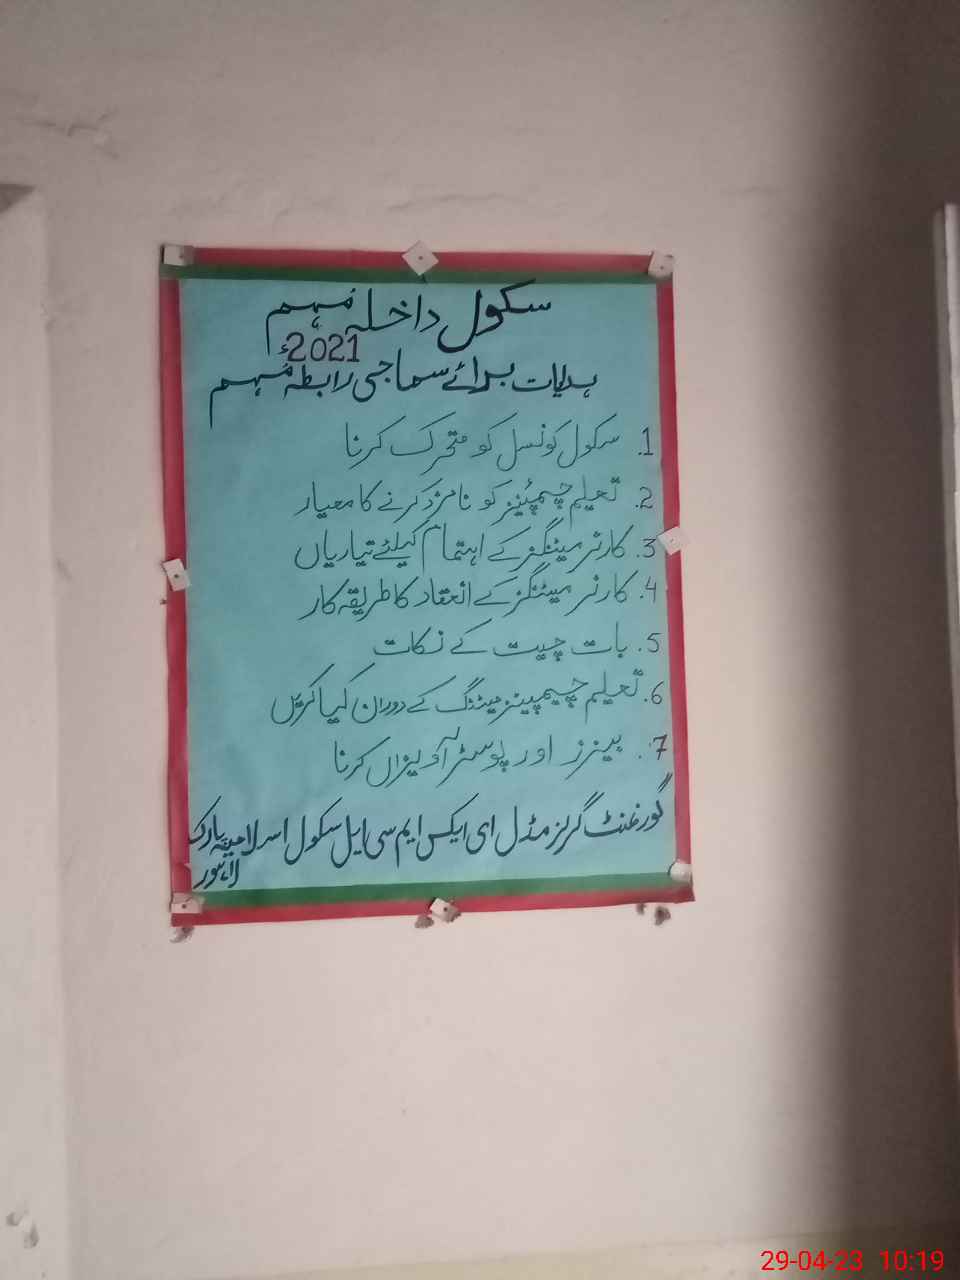 سکول داخلہ مُہم
2021ء
ہدایات برائے سماجی رابطہ مُہم
1. سکول کونسل کو متحرک کرنا
2. تعلیم چیمپئینز کو نامزد کرنے کا معیار
3. کارنر میٹنگز کے اہتمام کیلئے تیاریاں
4. کارنر میٹنگز کے انعقاد کا طریقہ کار
5. بات چیت کے نکات
6. تعلیم چیمپینز میٹنگ کے دوران کیا کریں
7. بینرز اور پوسٹر آویزاں کرنا
گورنمنٹ گرلز مڈل ای ایکس ایم سی ایل سکول اسلامیہ پارک
لاہور
29-04-23 10:19